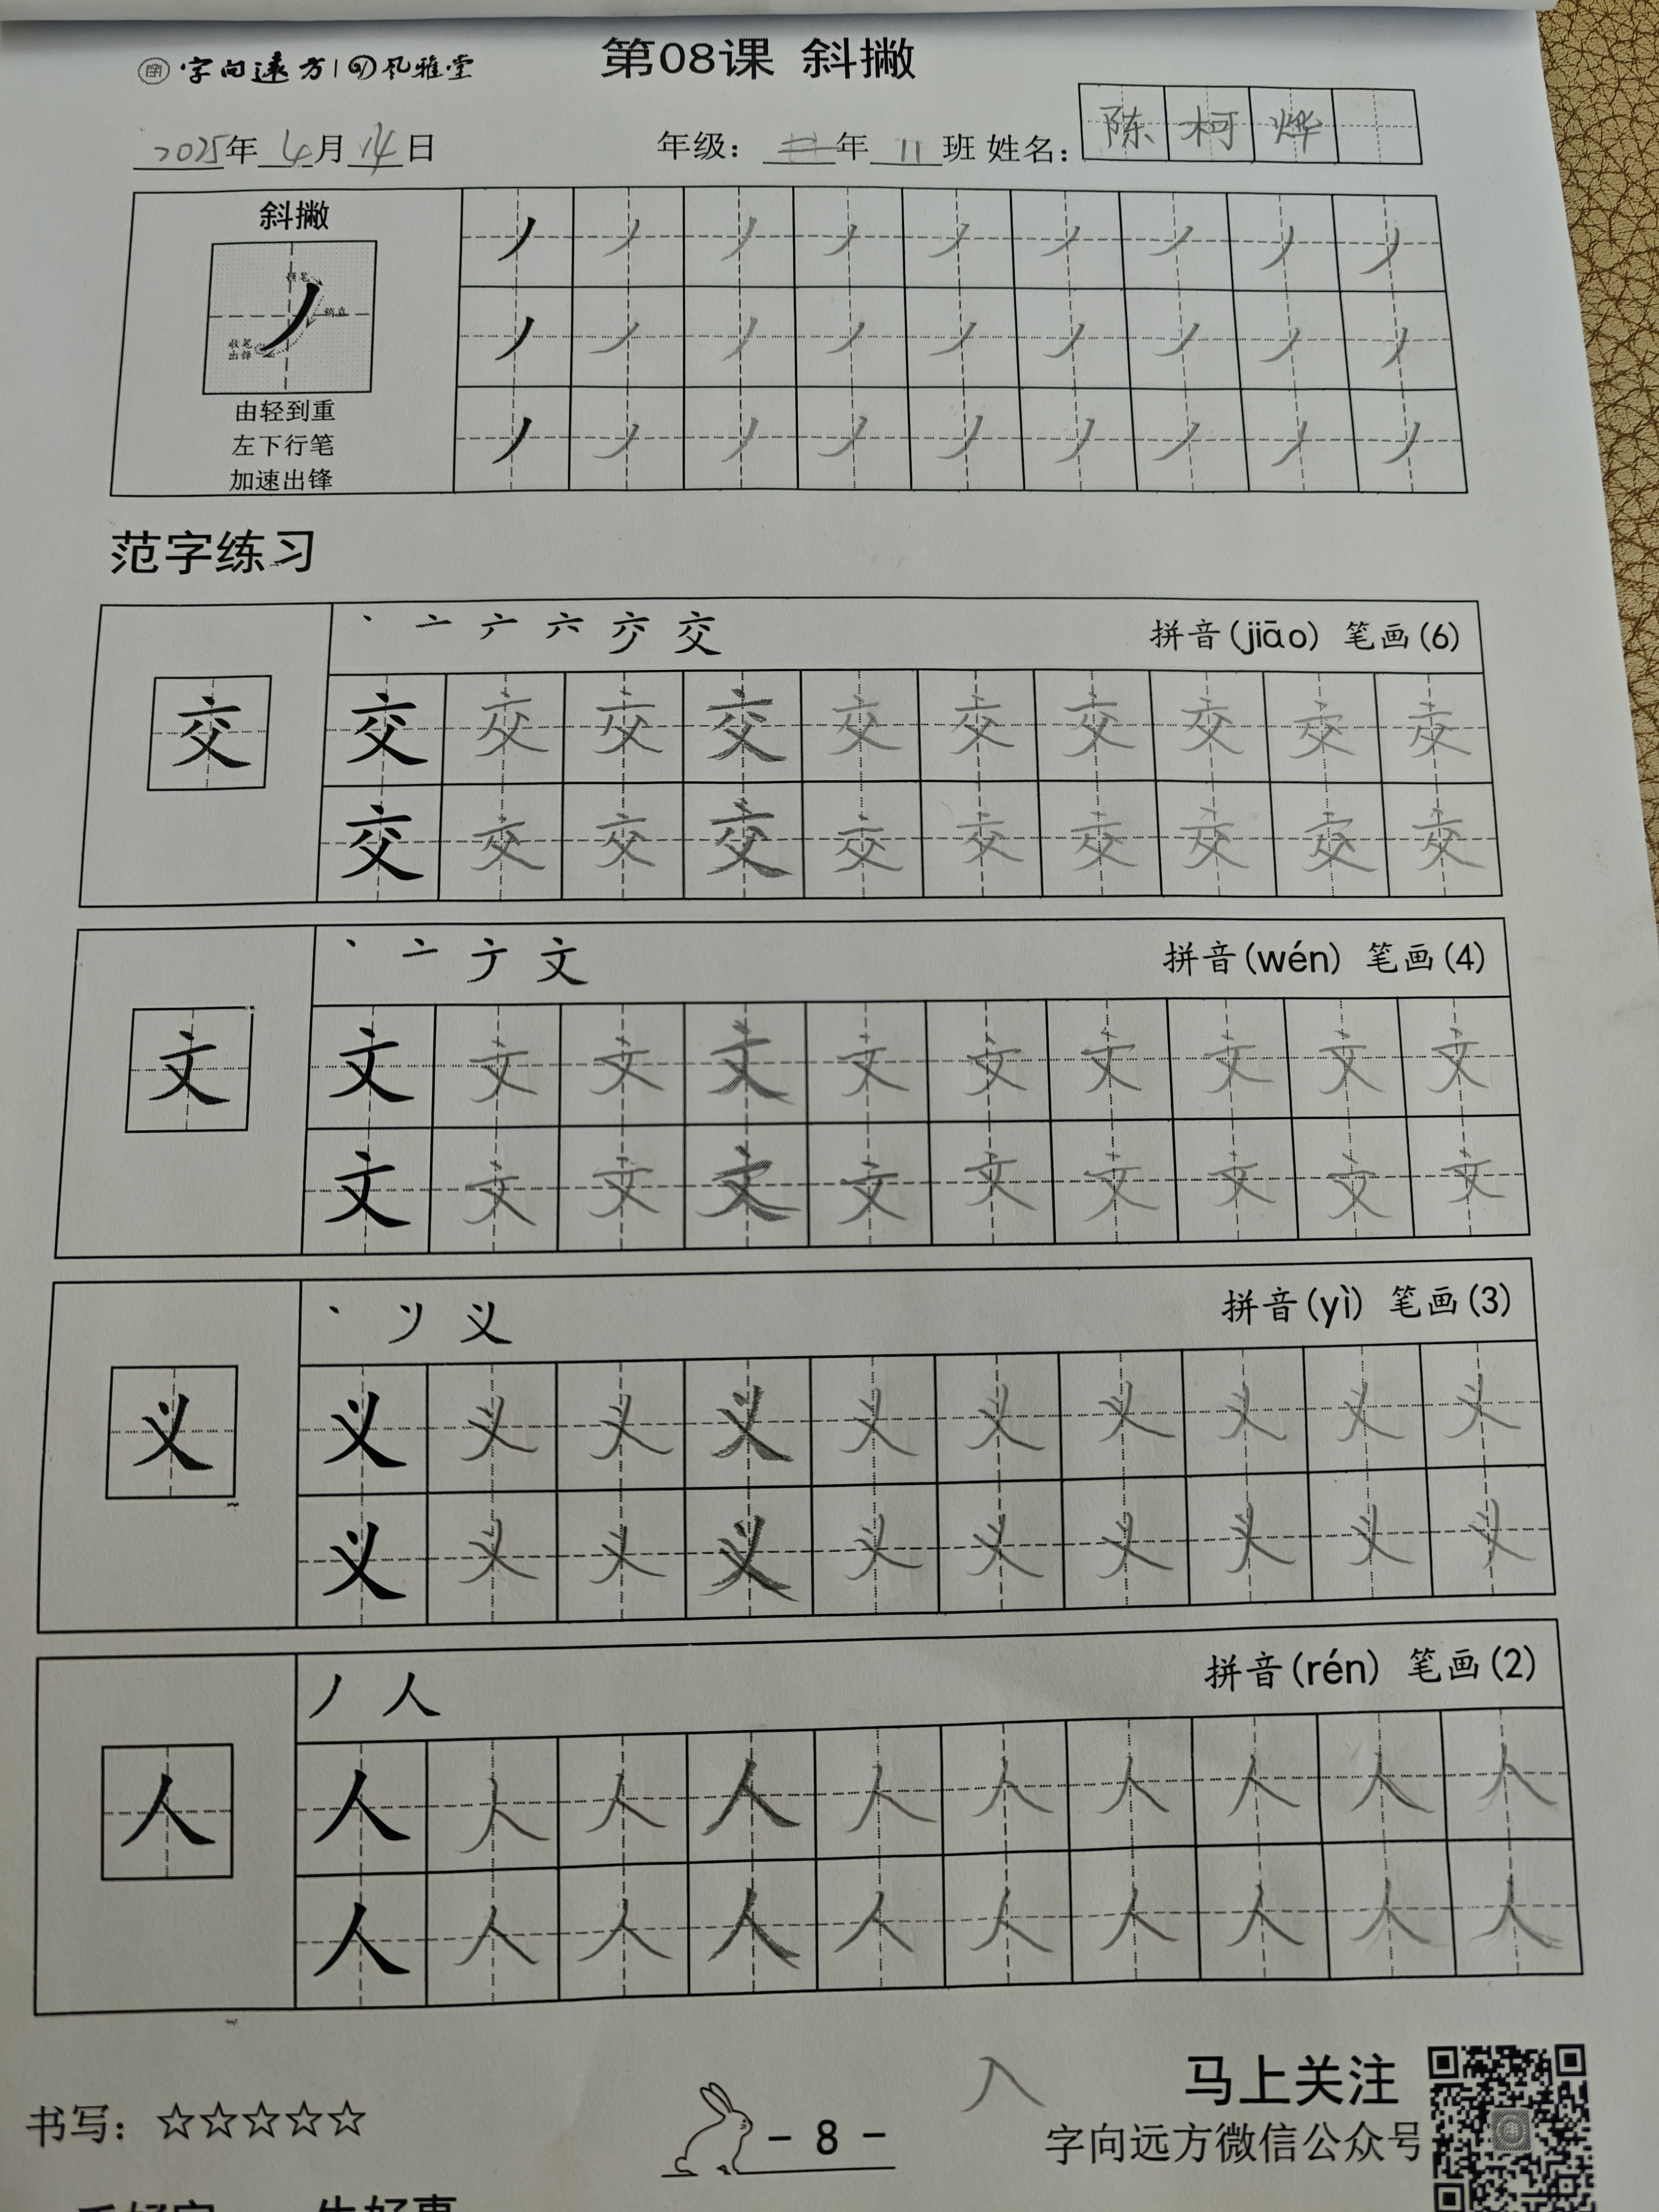 字向遠方 风雅堂
第08课 斜撇
2025年4月14日 年级：二年11班 姓名：陈柯烨
斜撇
收笔
出锋
由轻到重
左下行笔
加速出锋
丿丿丿丿丿丿丿丿丿
丿丿丿丿丿丿丿丿丿
丿丿丿丿丿丿丿丿丿
范字练习
丶 亠 六 交 拼音(jiāo) 笔画(6)
交
交交交交交交交交交交
交交交交交交交交交交
丶 亠 文 拼音(wén) 笔画(4)
文
文文文文文文文文文文
文文文文文文文文文文
丶 义 拼音(yì) 笔画(3)
义
义义义义义义义义义义
义义义义义义义义义义
丿 人 拼音(rén) 笔画(2)
人
人人人人人人人人人人
人人人人人人人人人人
书写：☆☆☆☆☆
- 8 -
入
马上关注
字向远方微信公众号